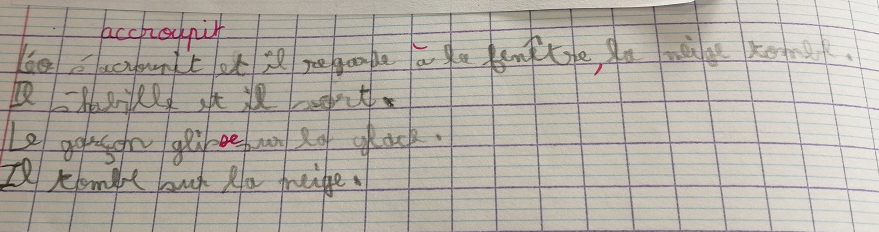 accroupit
Léo s'acroupit et il regarde à la fenêtre, la neige tombe.
Il s'habille et il sort.
Le garçon glisse sur la glace.
Il tombe sur la neige.